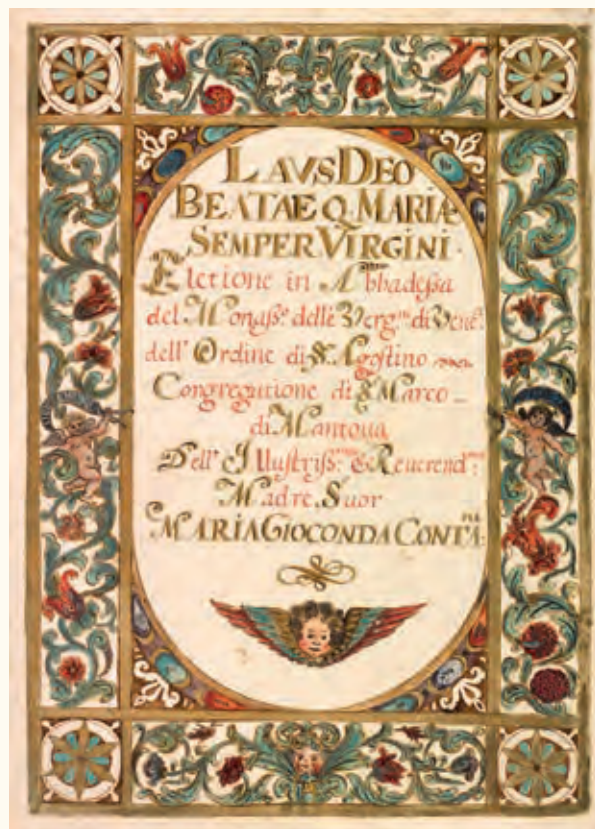 LAVS DEO
BEATAE Q. MARIÆ
SEMPER VIRGINI.
Eletione in Abbadessa
del Monass.º delle Verg.ni di Vene.ª
dell' Ordine di S. Agostino
Congregatione di S. Marco
di Mantoua
Dell' Illustriss.ma & Reuerend.ma
Madre Suor
MARIA GIOCONDA CONTA.ni